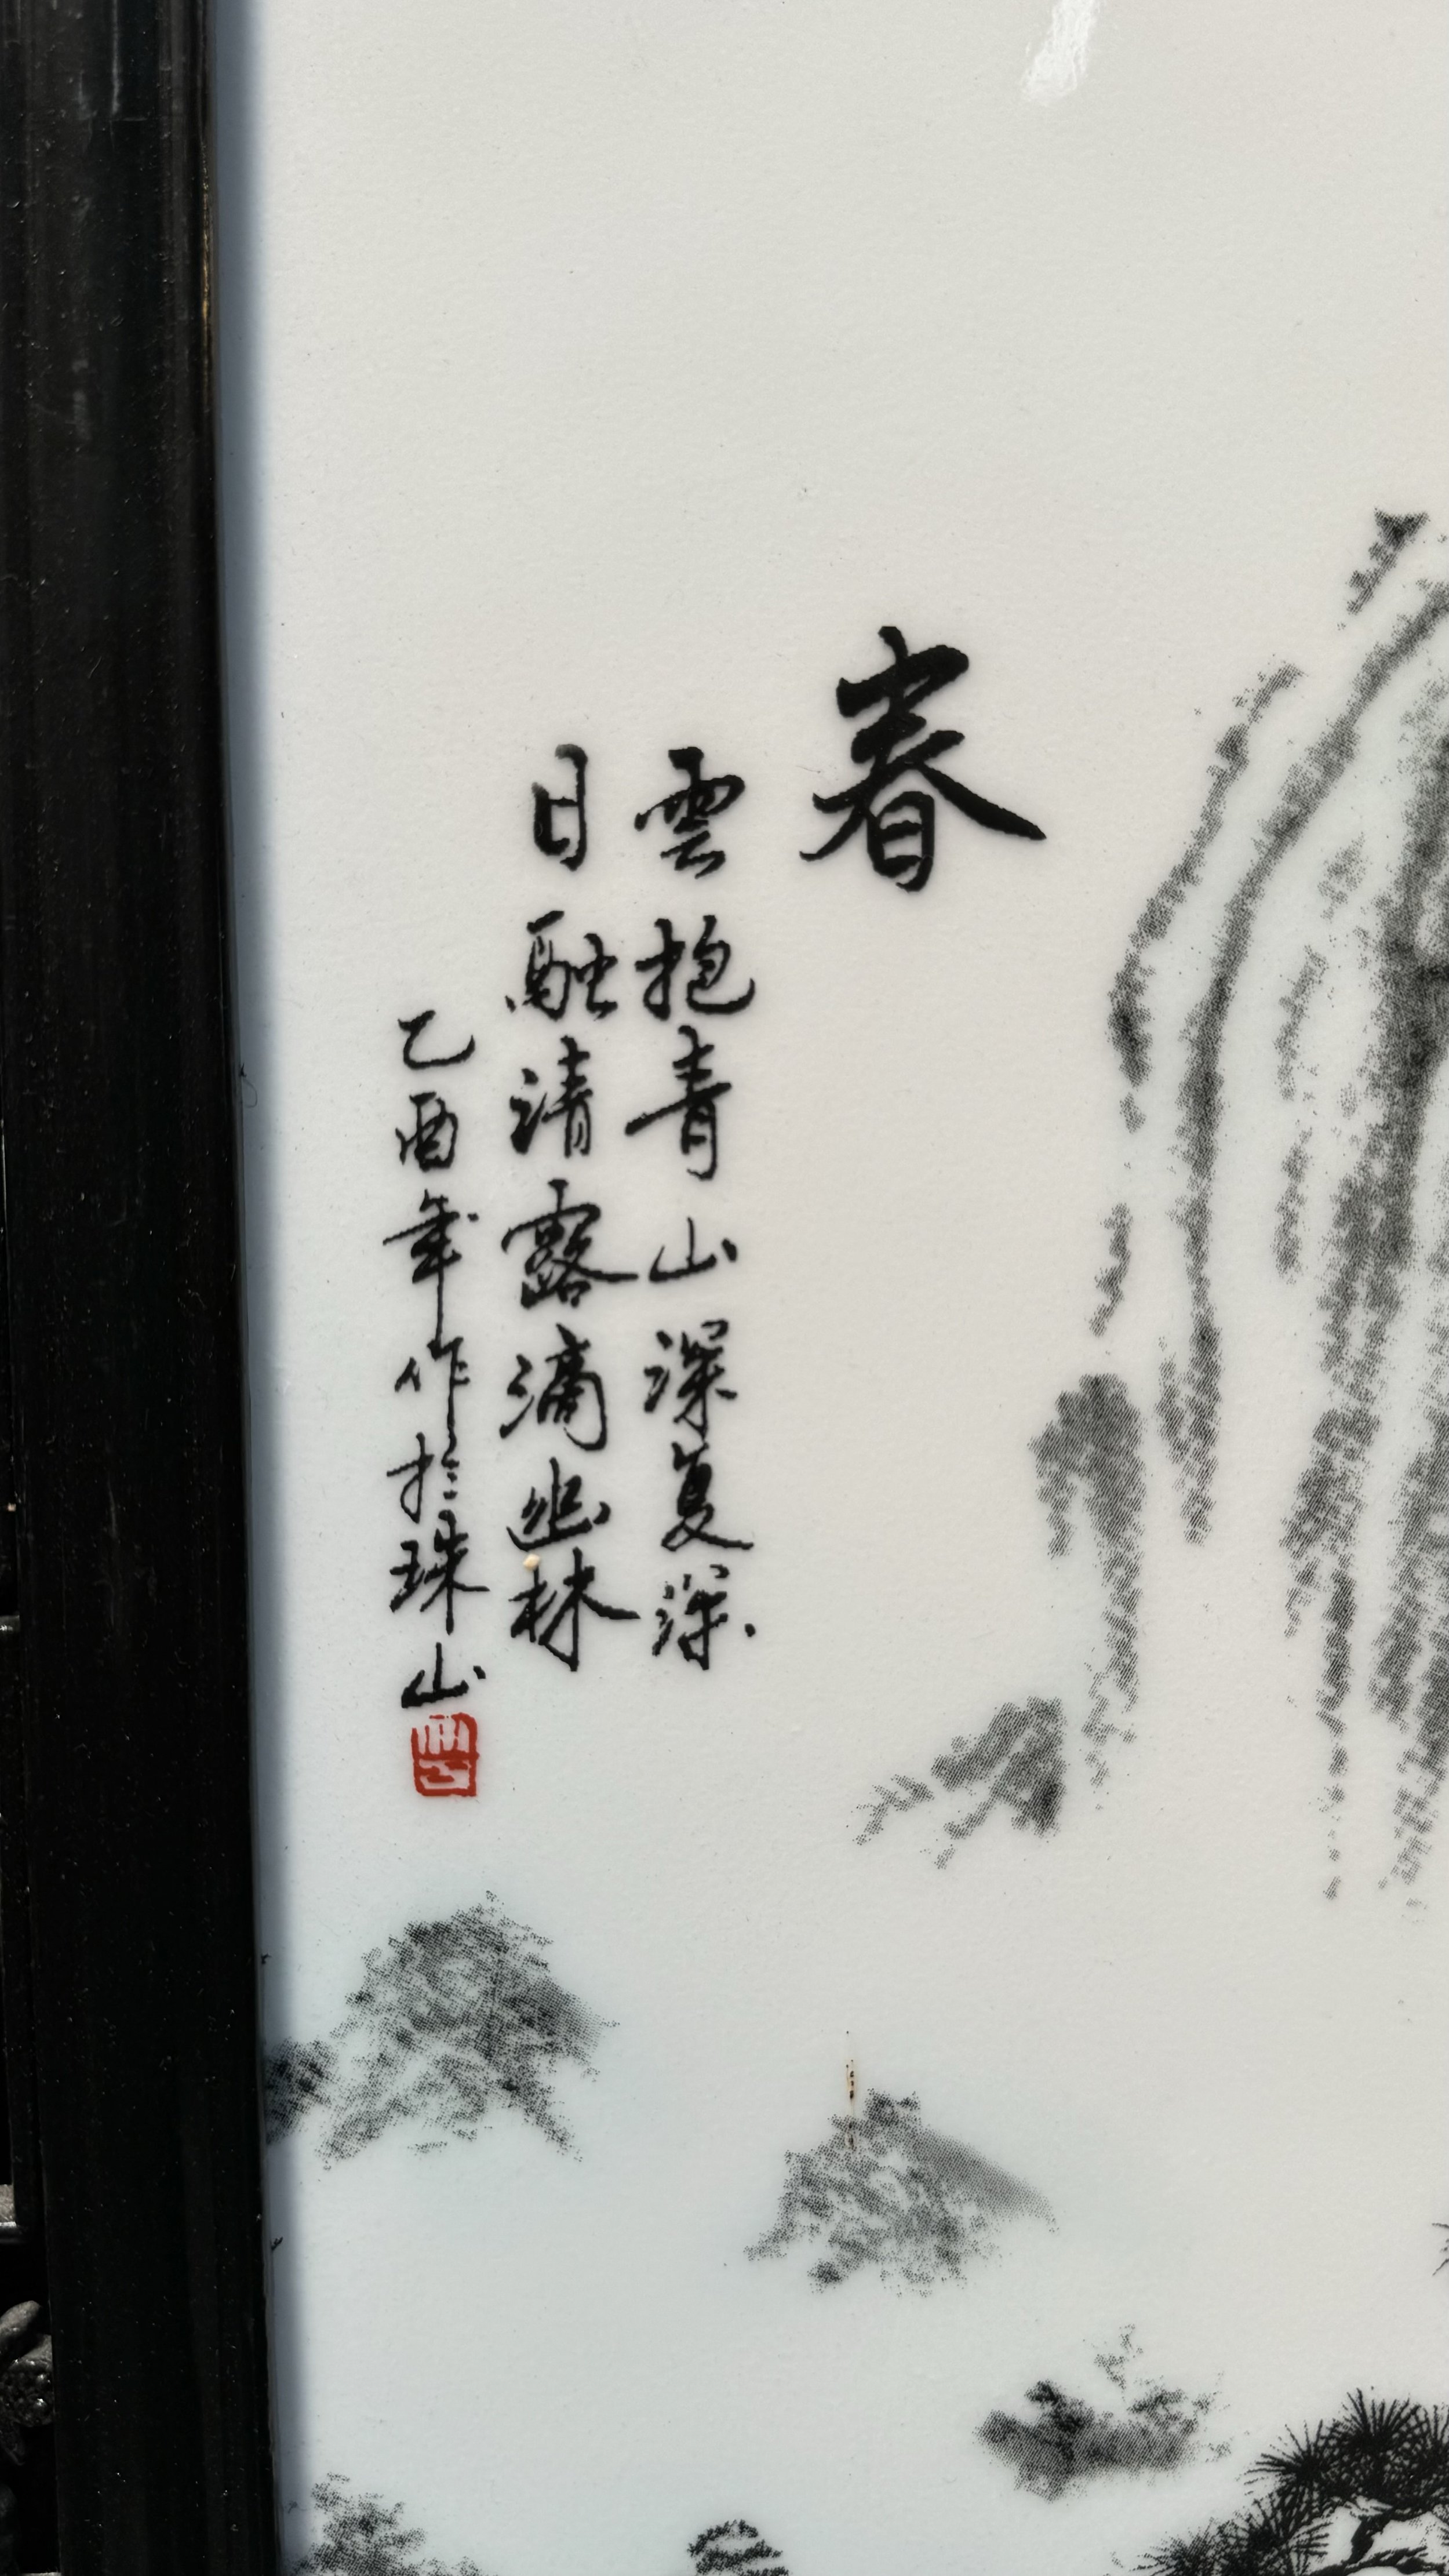 春
雲抱青山深复深
日融清露滴幽林
乙酉年作於珠山